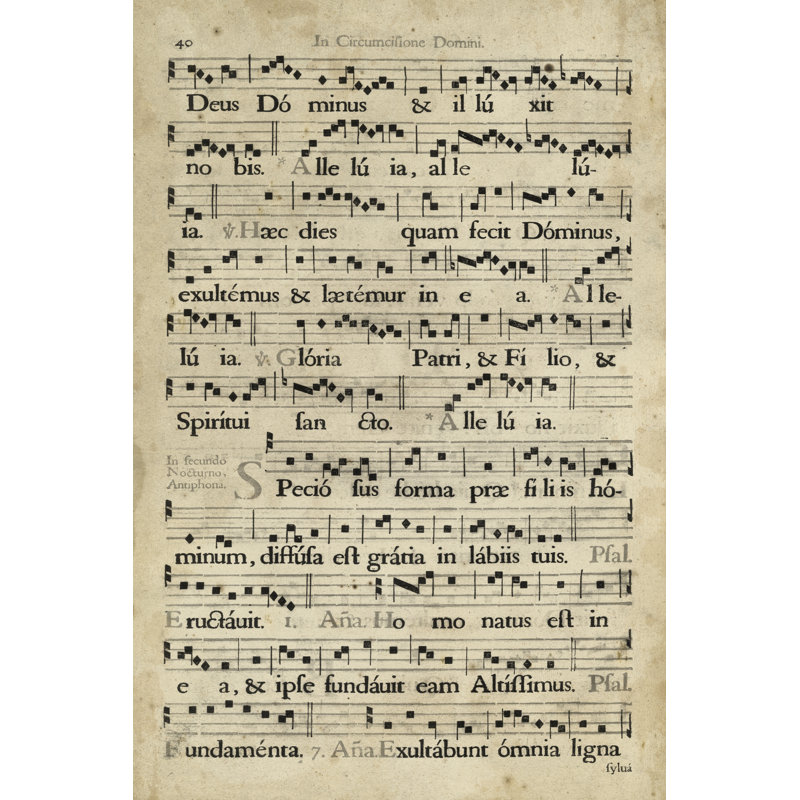 40 In Circumcisione Domini.
Deus Dó minus & il lú xit
no bis. * Alle lú ia, al le lú-
ia. ℣. Hæc dies quam fecit Dóminus,
exultémus & lætémur in e a. * Al le-
lú ia. ℣. Glória Patri, & Fí lio, &
Spirítui ſan cto. * Alle lú ia.
In ſecundo
Nocturno,
Antiphona.
SPeció ſus forma præ fi li is hó-
minum, diffúſa eſt grátia in lábiis tuis. Pſal.
Eructávit. 1. Aña. Ho mo natus eſt in
e a, & ipſe fundávit eam Altíſſimus. Pſal.
Fundaménta. 7. Aña. Exultábunt ómnia ligna
ſyluá